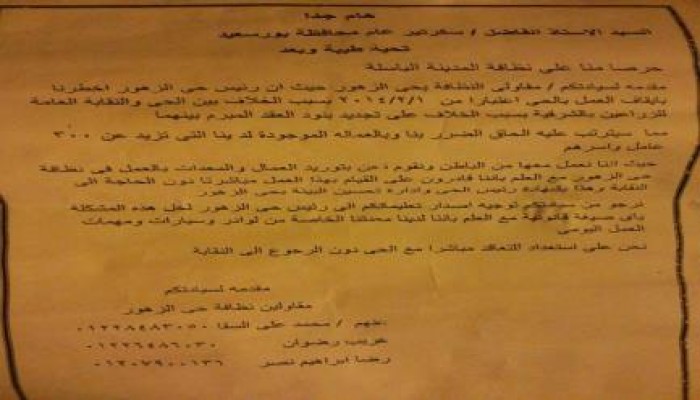 هام جدا
السيد الاستاذ الفاضل / سكرتير عام محافظة بورسعيد
تحية طيبة وبعد
حرصا منا على نظافة المدينة الباسلة
مقدمه لسيادتكم / مقاولى النظافة بحى الزهور حيث ان رئيس حى الزهور اخطرنا
بايقاف العمل بالحى اعتبارا من ٢٠١٤/٢/١ بسبب الخلاف بين الحى والنقابة العامة
للزراعين بالشرقية بسبب الخلاف على تجديد بنود العقد المبرم بينهما
مما سيترتب عليه الحاق الضرر بنا وبالعماله الموجودة لدينا التى تزيد عن ٣٠٠
عامل واسرهم
حيث اننا نعمل معها من الباطن ونقوم نحن بتوريد العمال والمعدات بالعمل فى نظافة
حى الزهور مع العلم باننا قادرون على القيام بهذا العمل مباشرتا دون الحاجة الى
النقابة وهذا بشهادة رئيس الحى وادارة تحسين البيئة بحى الزهور
نرجو من سيادتكم توجيه اصدار تعليماتكم الى رئيس حى الزهور لحل هذه المشكلة
باى صيغة قانونية مع العلم باننا لدينا معداتنا الخاصة من لوادر وسيارات ومهمات
العمل اليومى
نحن على استعداد التعاقد مباشرا مع الحى دون الرجوع الى النقابة
مقدمه لسيادتكم
مقاولين نظافة حى الزهور
منهم / محمد على السقا ٠١٢٢٨٤٨٣٠٥٠
غريب رضوان ٠١٢٢٦٤٨٦٠٣٠
رضا ابراهيم نصر ٠١٢٠٧٩٠٠١٣٦